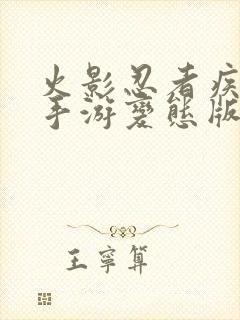 火影忍者疾
手游变态版
王寧算